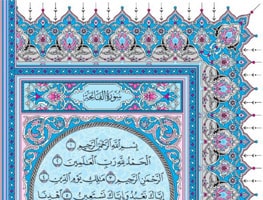 سُورَةُ الفَاتِحَةِ
بِسْمِ اللَّهِ الرَّحْمَٰنِ الرَّحِيمِ ١
الْحَمْدُ لِلَّهِ رَبِّ الْعَالَمِينَ ٢
الرَّحْمَٰنِ الرَّحِيمِ ٣ مَالِكِ يَوْمِ الدِّينِ ٤
إِيَّاكَ نَعْبُدُ وَإِيَّاكَ نَسْتَعِينُ ٥ اهْدِنَا